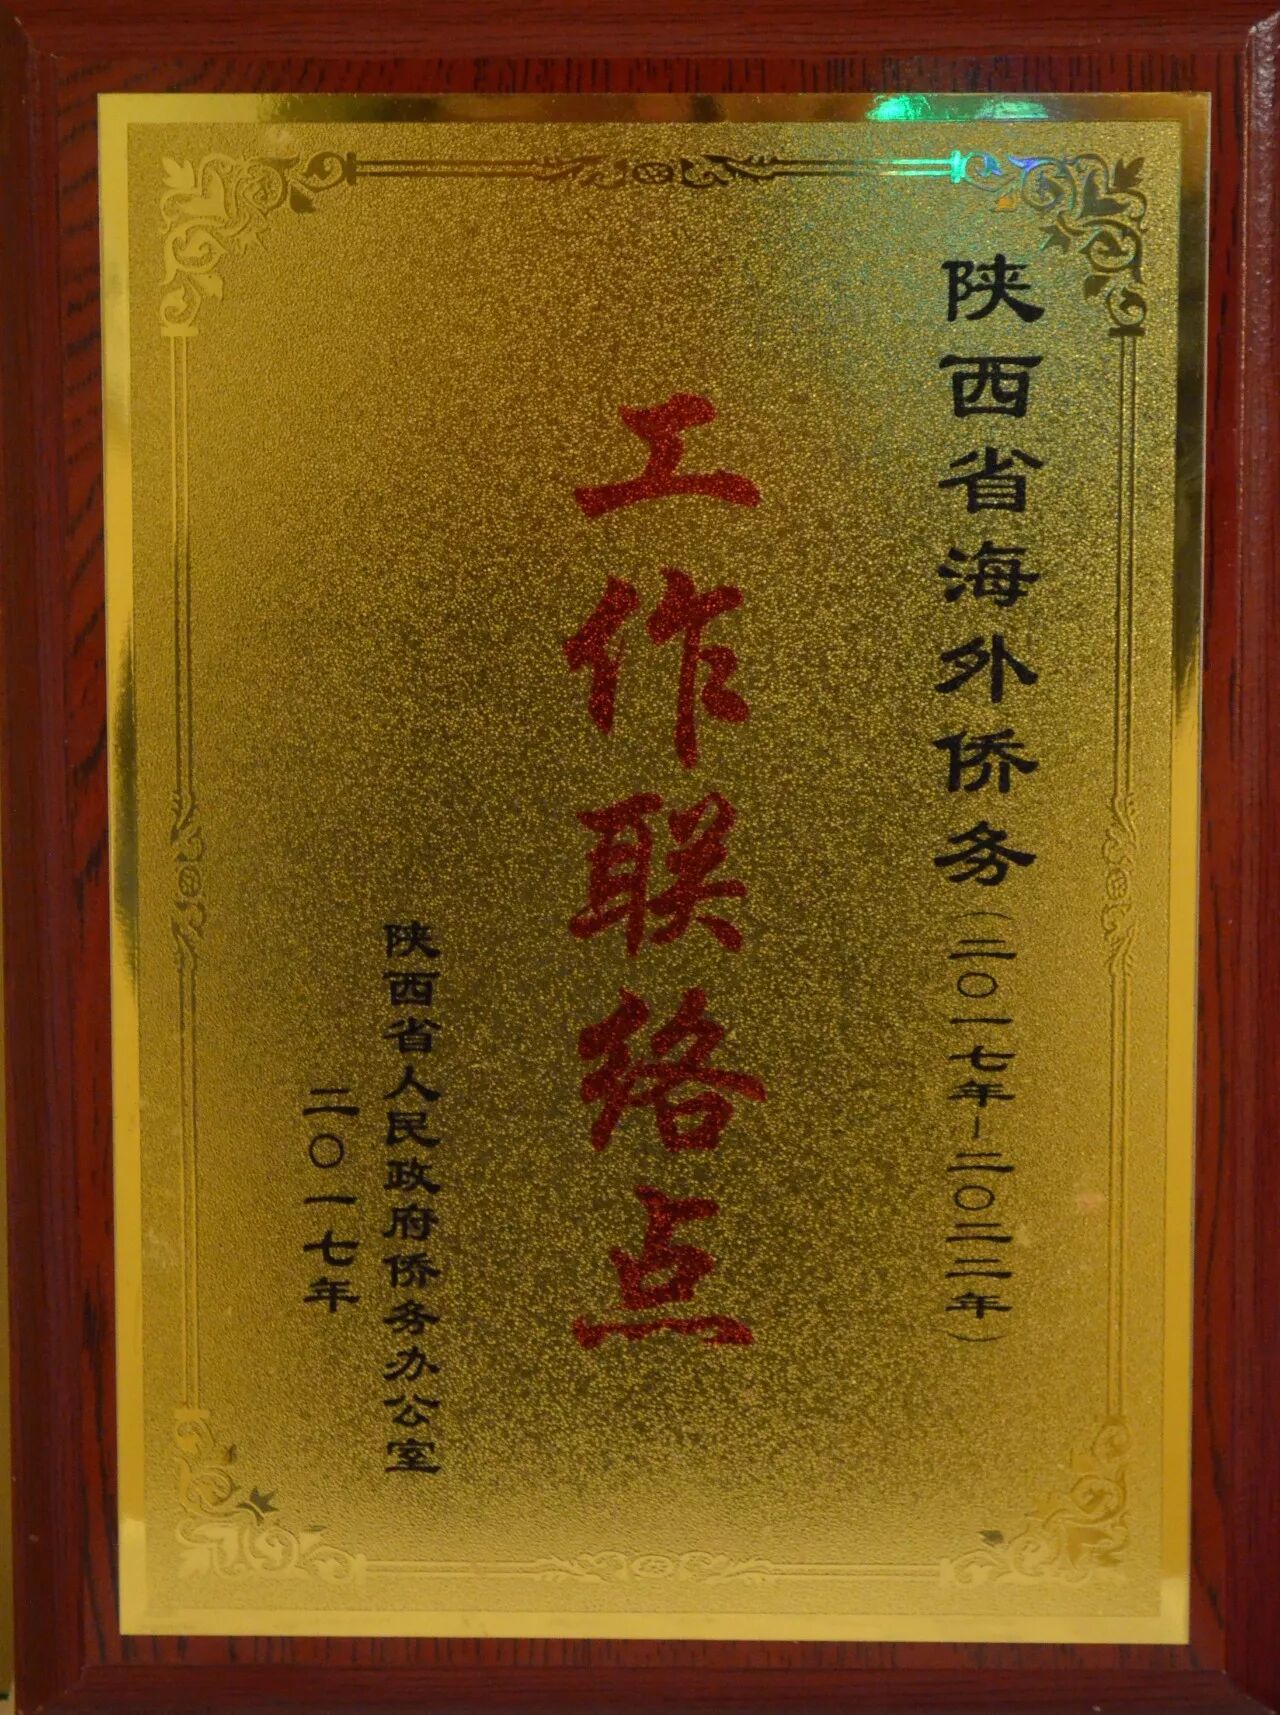 陕西省海外侨务(二〇一七年－二〇二二年)
工作联络点
陕西省人民政府侨务办公室
二〇一七年